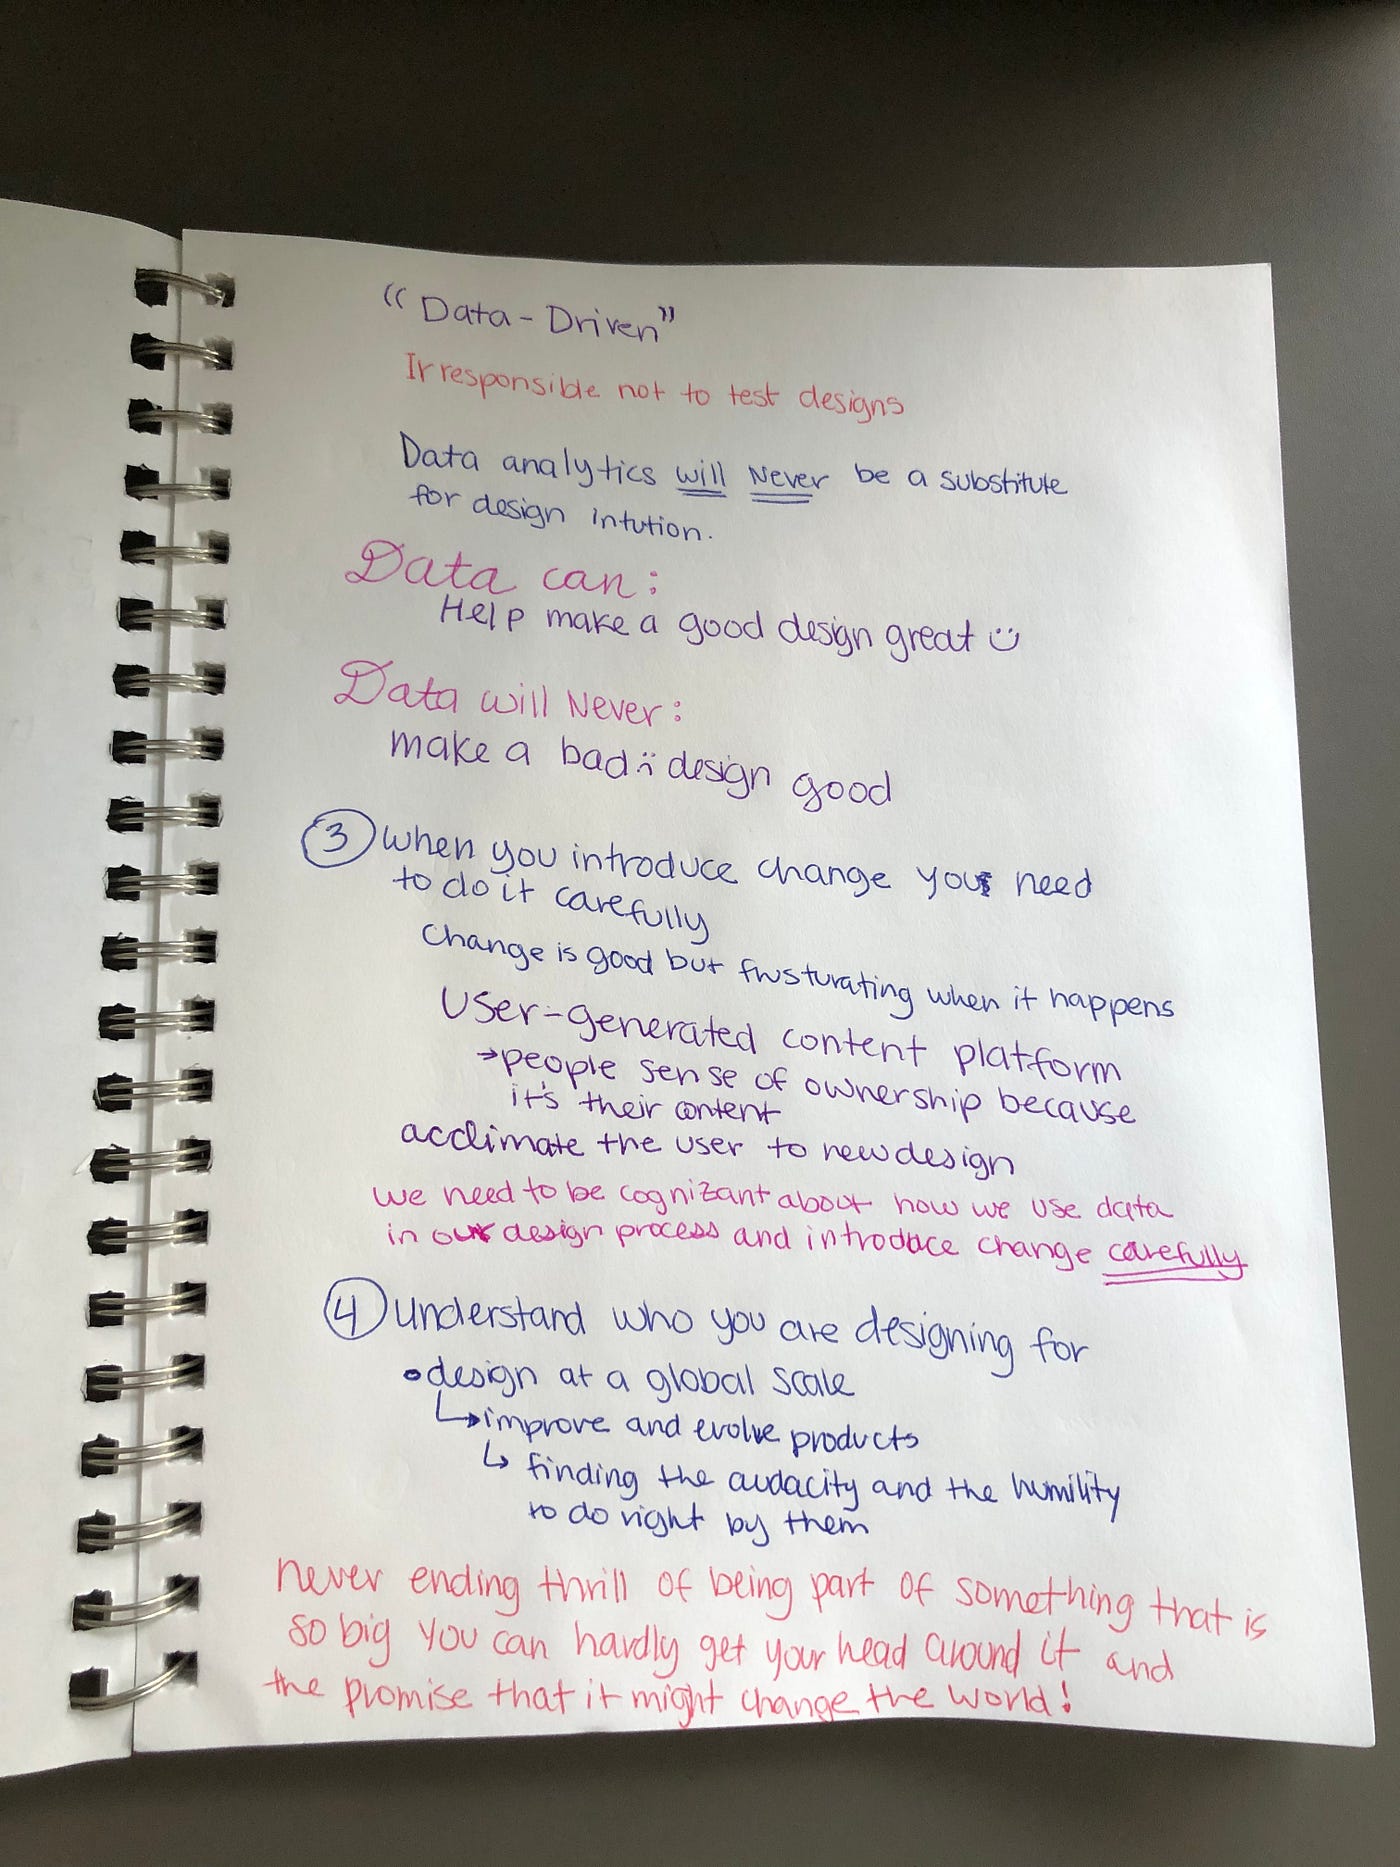 "Data-Driven"
Irresponsible not to test designs
Data analytics will Never be a substitute
for design intution.
Data can:
Help make a good design great :)
Data will Never:
make a bad :( design good
3 When you introduce change you need
to do it carefully
Change is good but frusturating when it happens
User-generated content platform
→people sense of ownership because
it's their content
acclimate the user to new design
we need to be cognizant about how we use data
in our design process and introduce change carefully
4 understand who you are designing for
• design at a global scale
↳ improve and evolve products
↳ finding the audacity and the humility
to do right by them
never ending thrill of being part of something that is
so big you can hardly get your head around it and
the promise that it might change the world!